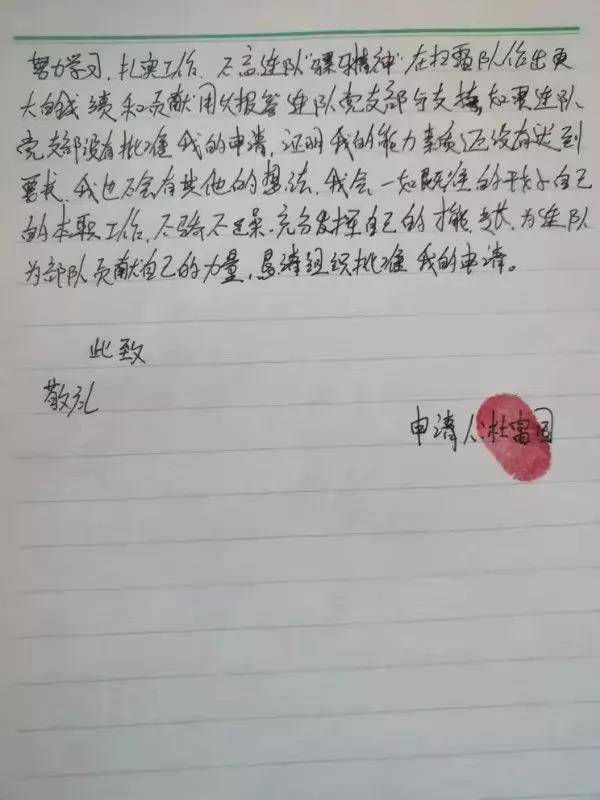 努力学习，扎实工作，不忘连队"骡子精神"在扫雷队作出更
大的成绩和贡献用以报答连队党支部与支持，如果连队
党支部没有批准我的申请，证明我的能力素质还没有达到
要求，我也不会有其他的想法，我会一如既往的干好自己
的本职工作，不骄不躁，充分发挥自己的才能、专长，为连队
为部队贡献自己的力量，恳请组织批准我的申请。
此致
敬礼
申请人:杜富国